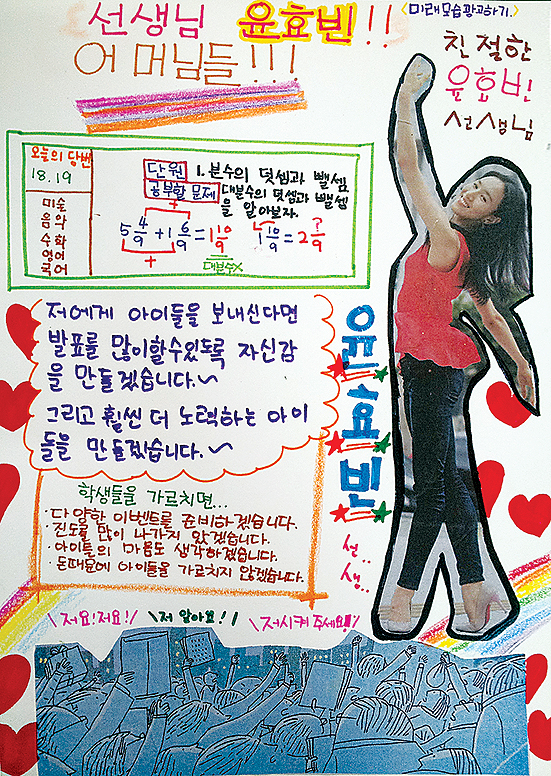 선생님 윤효빈!!
<미래모습광고하기.>
어머님들!!!
친절한
윤효빈
선생님
오늘의 당번
18.19
미술
음악
수학
영어
국어
단원 1.분수의 덧셈과 뺄셈
공부할 문제 대분수의 덧셈과 뺄셈
을 알아보자.
5 4/9 + 1 6/9 = 1 10/9 1 10/9 = 2 ?/9
+
대분수X
저에게 아이들을 보내신다면
발표를 많이할수있도록 자신감
을 만들겠습니다.~
그리고 훨씬 더 노력하는 아이
들을 만들겠습니다.~
윤효빈
선..
생..
학생들을 가르치면...
·다양한 이벤트를 준비하겠습니다.
·진도를 많이 나가지 않겠습니다.
·아이들의 마음도 생각하겠습니다.
·돈때문에 아이들을 가르치지 않겠습니다.
\저요!저요!/ \저 알아요!/ \저시켜 주세요!/